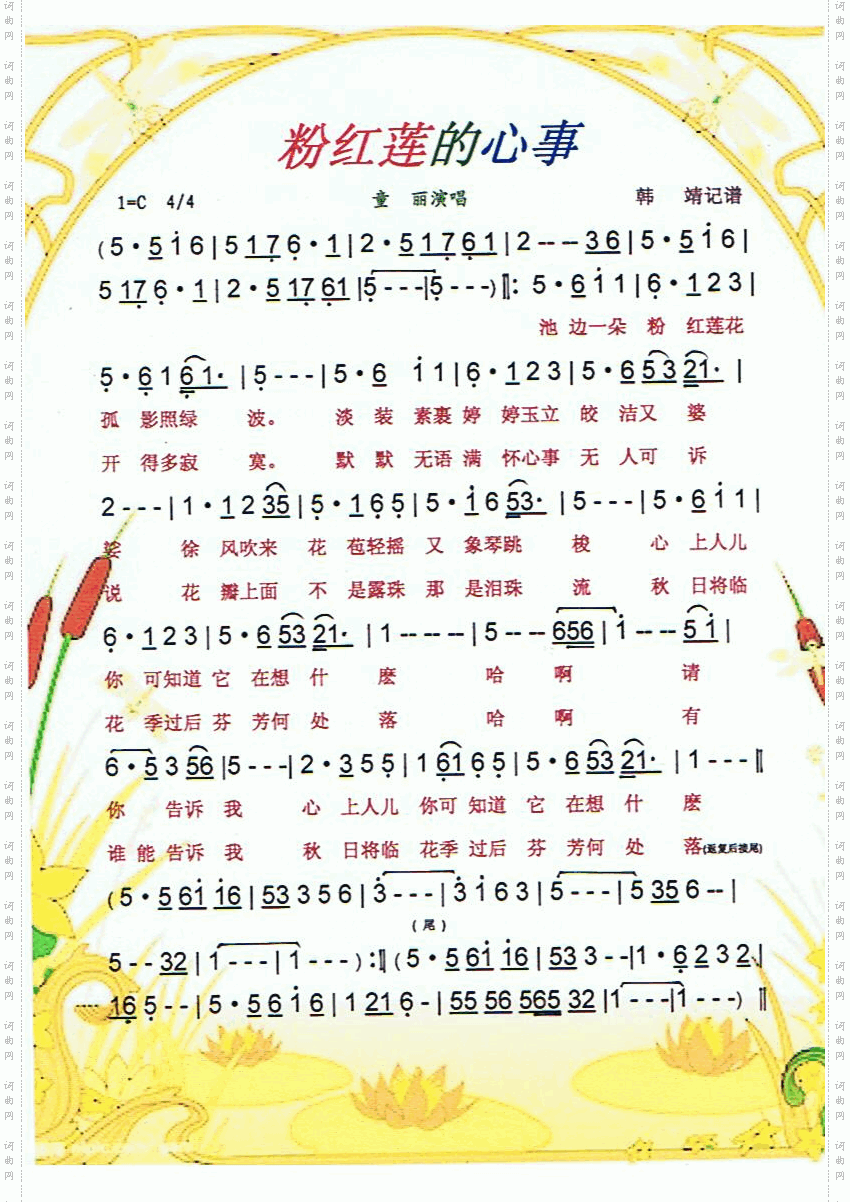 粉红莲的心事
1=C 4/4 童 丽演唱 韩 靖记谱
(5·5i6|5176·1|2·51761|2---36|5·5i6|
5176·1|2·51761|5---|5---)‖:5·6i1|6·123|
池 边一朵 粉 红莲花
5·6161·|5---|5·6i1|6·123|5·65321·|
孤 影照绿 波。 淡 装 素裹 婷 婷玉立 皎 洁又 婆
开 得多寂 寞。 默 默 无语 满 怀心事 无 人可 诉
2---|1·1235|5·165|5·i653·|5---|5·6i1|
娑 徐 风吹来 花 苞轻摇 又 象琴跳 梭 心 上人儿
说 花 瓣上面 不 是露珠 那 是泪珠 流 秋 日将临
6·123|5·65321·|1----|5---656|i---5i|
你 可知道 它 在想 什 麽 哈 啊 请
花 季过后 芬 芳何 处 落 哈 啊 有
6·5356|5---|2·355|16165|5·65321·|1---‖
你 告诉 我 心 上人儿 你可 知道 它 在想 什 麽
谁 能 告诉 我 秋 日将临 花季 过后 芬 芳何 处 落(返复后接尾)
(5·561i6|53356|3---|3i63|5---|5356--|
(尾)
5--32|1---|1---):‖(5·561i6|533--|1·6232|
165--|5·56i6|1216-|555656532|1---|1---)‖
词曲网